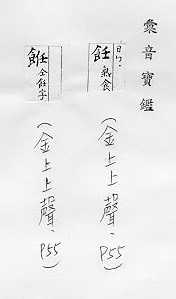 彙音寶鑑
日ㄅ·
飪 熟食
(金上上聲、P55)
餁 仝飪字
(金上上聲、P55)